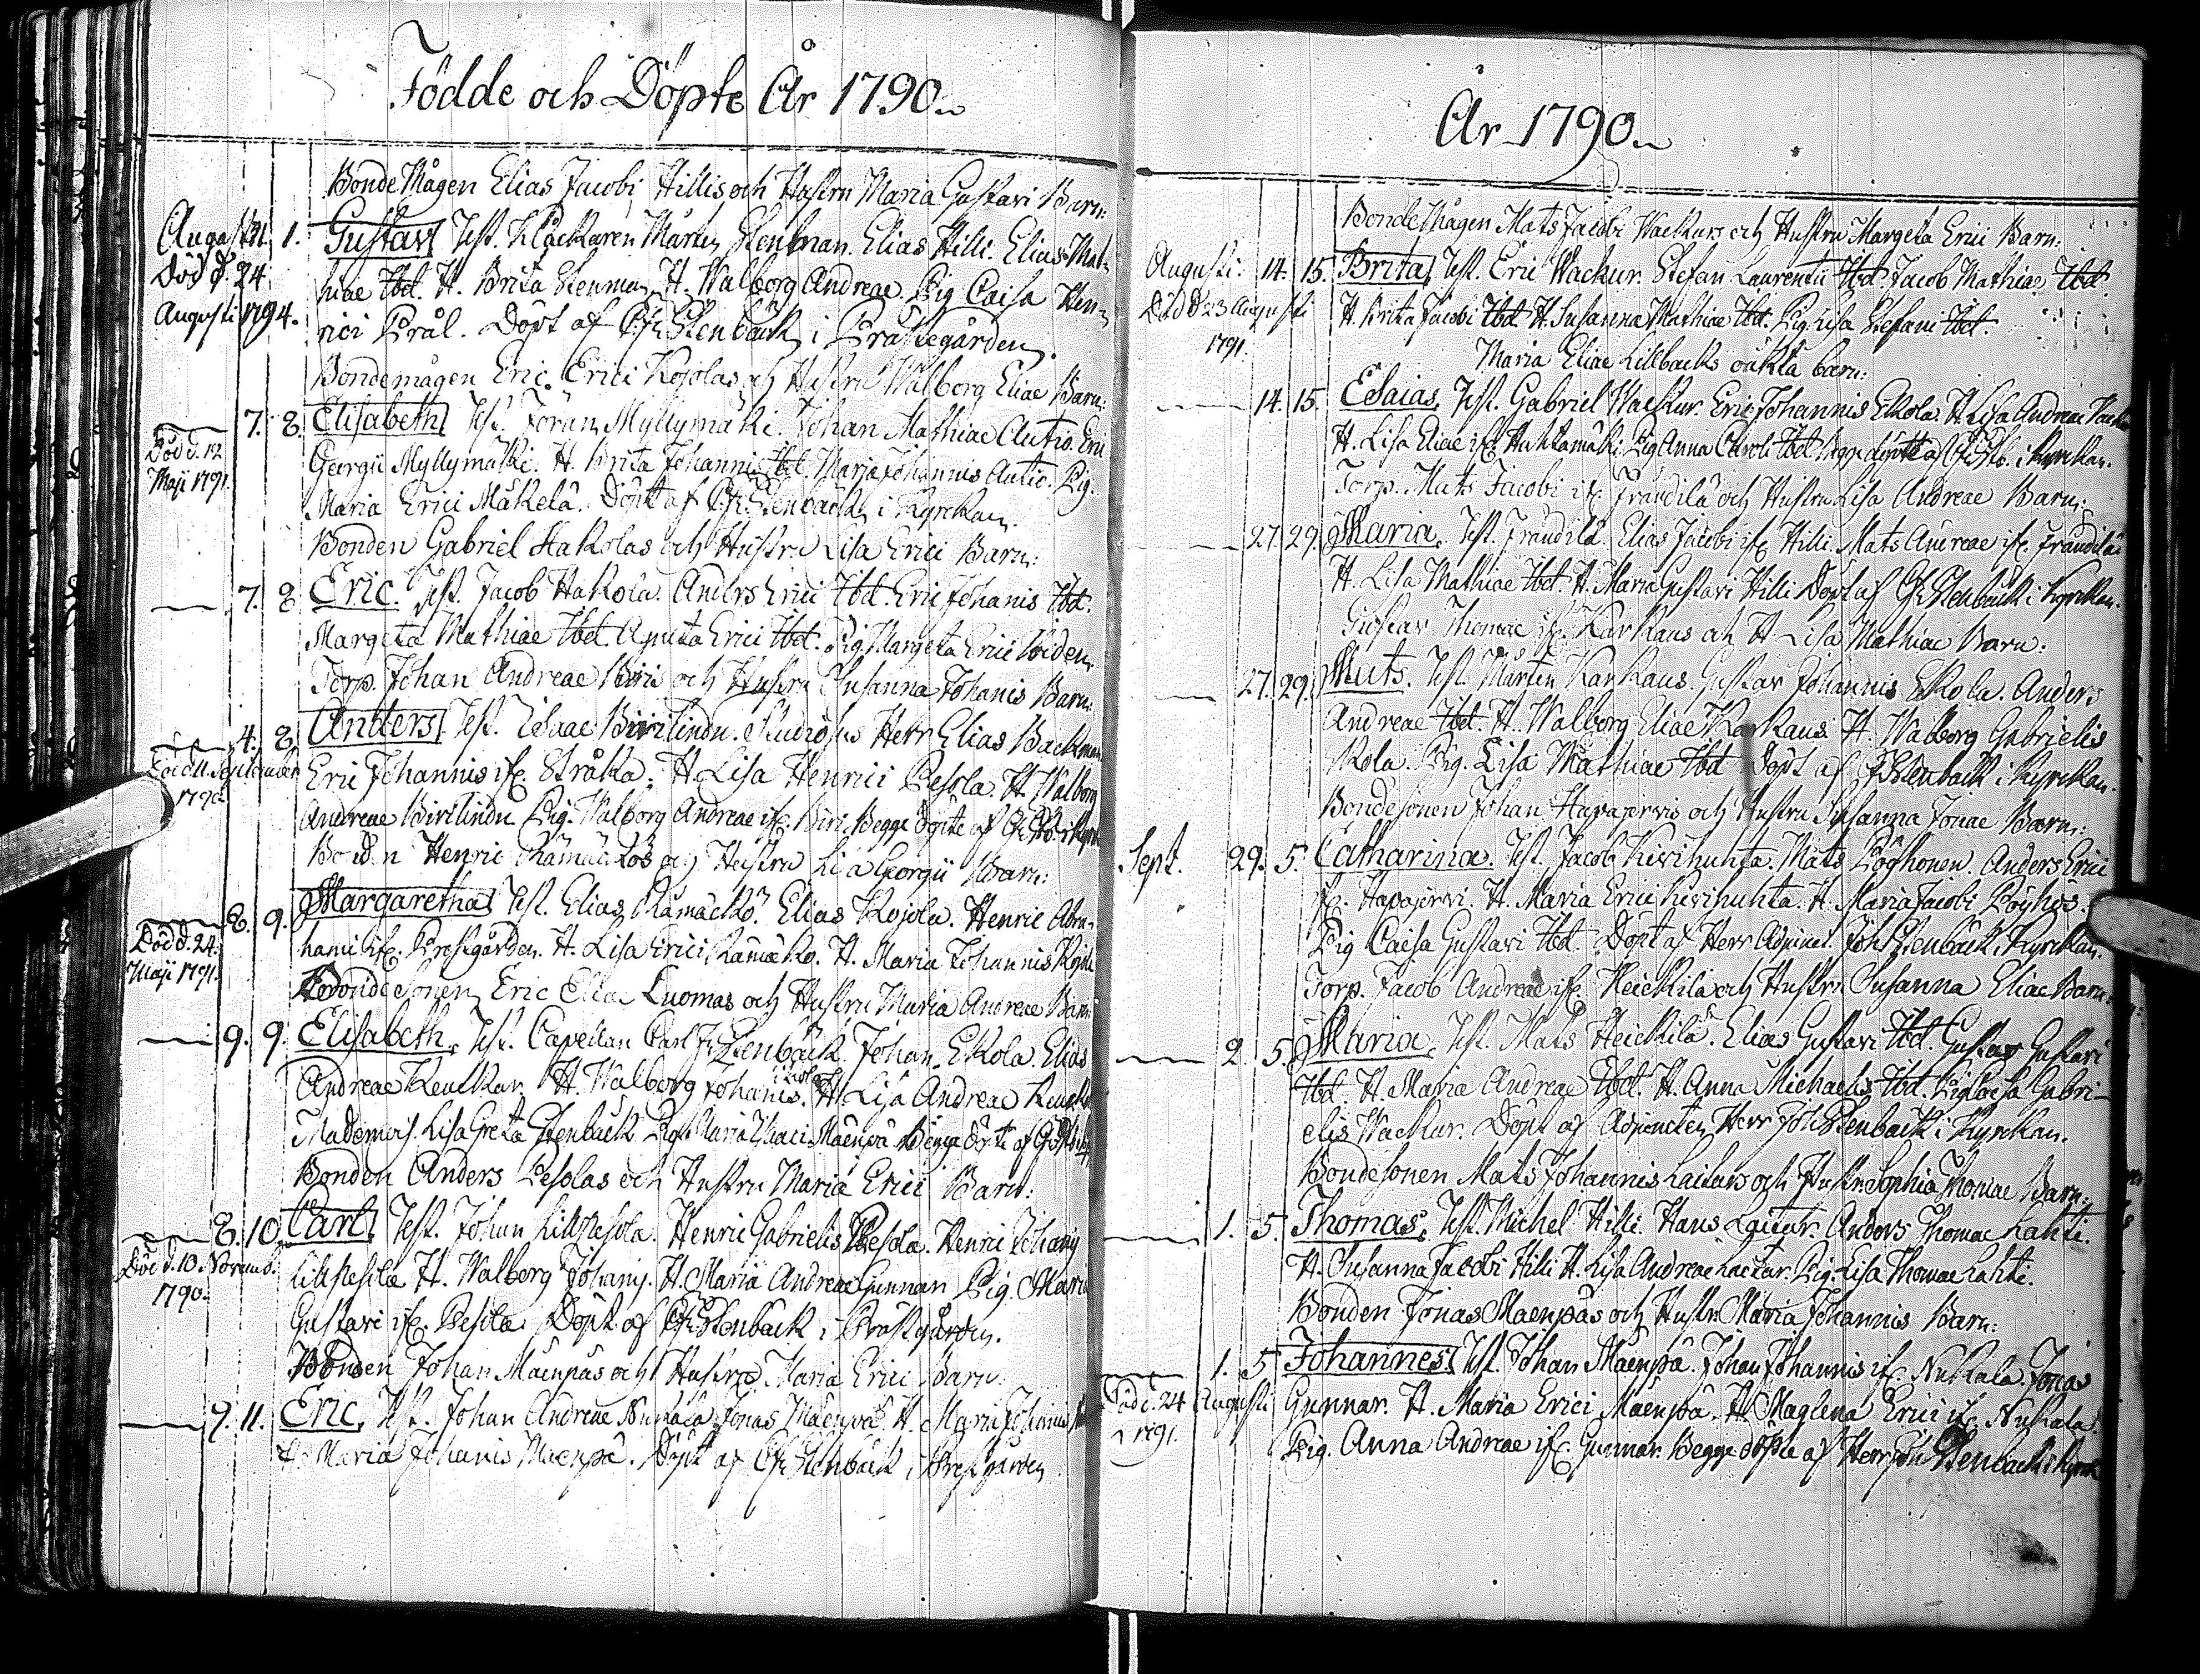 Födde och Döpte År 1790.
BondeMågen Elias Jacobi Hillis och Hustru Maria Gustavi Barn:
Augusti 1. Gustav Test. Klåckaren Mårten Stenman. Elias Hilli. Elias Mat-
Död d. 24 hiae Ibd. H. Brita Stenman, H. Walborg Andreae Pig Caisa Hen-
Augusti 1794. rici Prål. Döpt af Stenbäck i Prästegården.
Bondemågen Eric Erici Kojolas och Hustru Walborg Eliae Barn:
7. 8. Elisabeth Test. Jöran Myllymäki. Johan Mathiae Autio. Eric
Död d. 12 Georgii Myllymäki. H. Brita Johannis Ibd. Marja Johannis Autio. Pig.
Maji 1791. Maria Erici Mäkelä. Döpt af Stenbäck i Kyrckan.
Bonden Gabriel Hakolas och Hustru Lisa Erici Barn:
7. 8 Eric. Test. Jacob Hakola. Anders Erici Ibd. Eric Johanis Ibd.
Margeta Mathiae Ibd. Agneta Erici Ibd. Pig. Margeta Erici
Torp. Johan Andreae och Hustru Susanna Johanis Barn:
4. 8 Anders Test. Isaac Studiosus Herr Elias Backman
Död d 11 September Eric Johannis Stråka. H. Lisa Henrici Pesola. H. Walborg
1790. Andreae Pig. Walborg Andreae Begge döpte af
Bonden Henric Kämäckös och Hustru Lisa Georgii Barn:
8. 9. Margaretha Test. Elias Kämäckö. Elias Kojola. Henric Abra-
Död d. 24. hami Prestgården. H. Lisa Erici Kämäckö. H. Maria Johannis
Maji 1791. Bondesonen Eric Eliae Luomas och Hustru Maria Andreae Barn
9. 9. Elisabeth, Test. Capellan Carl Fr. Stenbäck. Johan Ekola. Elias
Andreae H. Walborg Johanis. H. Lisa Andreae
Lisa Greta Stenbäck Pig. Maria Isaaci Mäenpä Begge döpte af
Bonden Anders Pesolas och Hustru Maria Erici Barn:
8. 10. Carl Test. Johan Lillpesola. Henric Gabrielis Pesola. Henric Johanis
Död d. 10 Novemb. Lillpesola H. Walborg Johanis. H. Maria Andreae Gunnar Pig. Maria
1790. Gustavi Pesola Döpt af Stenbäck i Prästgården.
Bonden Johan Mäenpäs och Hustru Maria Erici Barn.
9. 11. Eric, Test. Johan Andreae Nukala Jonas Mäenpä. H. Maria Johannis
H. Maria Johanis Mäenpä. Döpt af Stenbäck i Prestgården
År 1790.
BondeMågen Mats Jacobi Wackurs och Hustru Margeta Erici Barn.
Augusti. 14. 15. Brita Test. Eric Wackur. Stefan Laurentii Ibd. Jacob Mathiae Ibd.
Död d 23 Augusti H. Brita Jacobi Ibd. H. Susanna Mathiae Ibd. Pig. Lisa Stefani Ibd.
1791. Maria Eliae Lillbacks oäkta barn:
14. 15. Esaias, Test. Gabriel Wackur. Eric Johannis Ekola. H. Lisa Andreae
H. Lisa Eliae Huhtamäki Pig Anna Caroli Ibd. Begge döpte af i Kyrckan.
Torp. Mats Jacobi Frändilä och Hustru Lisa Andreae Barn:
27. 29. Maria, Test. Frändilä. Elias Jacobi Hilli. Mats Andreae Frändilä
H. Lisa Mathiae Ibd. H. Maria Gustavi Hilli Döpt af Stenbäck i Kyrckan.
Gustav Thomae Karkaus och H Lisa Mathiae Barn:
27. 29. Mats. Test. Mårten Karkaus. Gustav Johannis Ekola. Anders
Andreae Ibd. H. Walborg Eliae Karkaus. H. Walborg Gabrielis
Kola. Pig. Lisa Mathiae Ibd Döpt af Stenbäck i Kyrckan.
Bondesonen Johan Havajervis och Hustru Susanna Jonae Barn:
Sept. 29. 5. Catharina. Test. Jacob Kivihuhta. Mats Pöyhonen. Anders Erici
Havajervi. H. Maria Erici Kivihuhta. H. Maria Jacobi Pöyhös.
Pig Caisa Gustavi Ibd. Döpt af Herr Adjunct. Joh Stenbäck i Kyrckan.
Torp. Jacob Andreae Heickilä och Hustru Susanna Eliae Barn
2. 5. Maria. Test. Mats Heickilä. Elias Gustavi Ibd. Gustav Gustavi
Ibd. H. Maria Andreae Ibd. H. Anna Michaelis Ibd. Pig Caisa Gabri-
elis Wackur. Döpt af Adjuncten Herr Joh Stenbäck i Kyrckan.
Bondesonen Mats Johannis Laitars och Hustru Sophia Thomae Barn.
1. 5. Thomas, Test. Michel Hilli. Hans Laitar. Anders Thomae Lahti.
H. Susanna Jacobi Hilli H. Lisa Andreae Laitar. Pig. Lisa Thomae Lahti.
Bonden Jonas Mäenpäs och Hustru Maria Johannis Barn.
1. 5 Johannes. Test. Johan Mäenpä. Johan Johannis Nukala Jonas
Död d. 24 Augusti Gunnar. H. Maria Erici Mäenpä. H. Maglena Erici Nukala
1791. Pig. Anna Andreae Gunnar. Begge döpte af Herr Joh Stenbäck i Kyrck